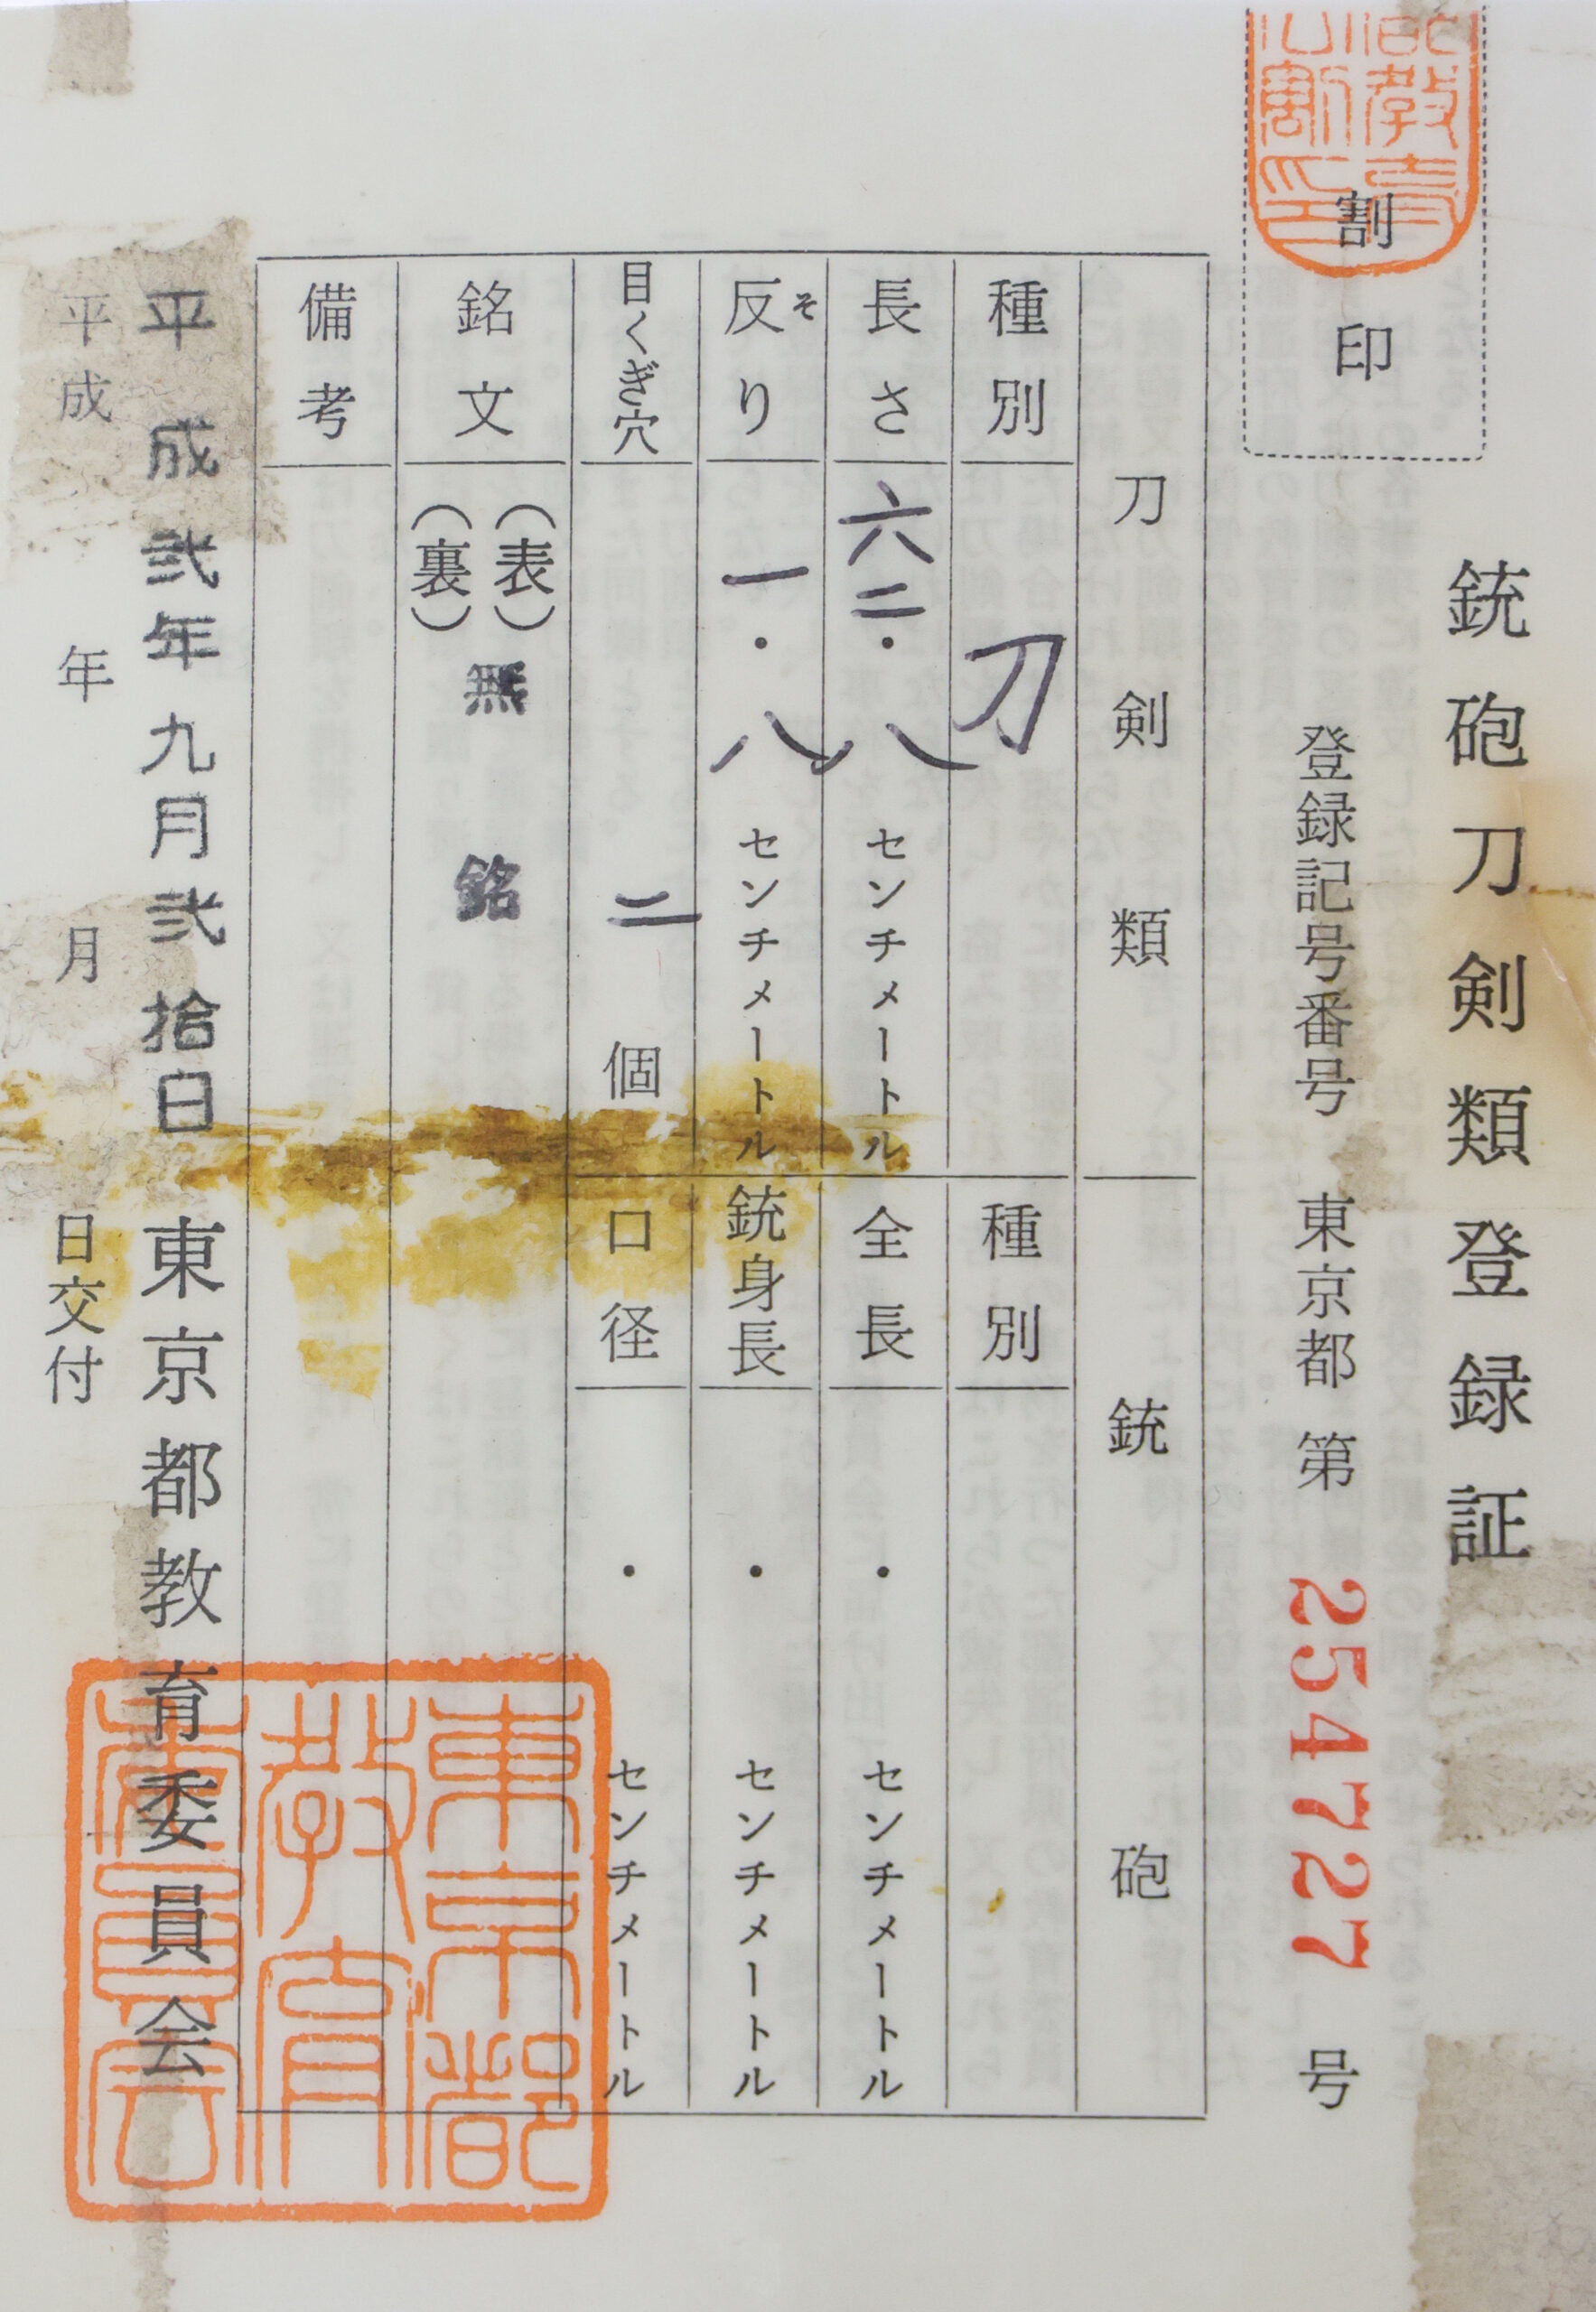 銃砲刀剣類登録証
割印
登録記号番号 東京都 第 254727 号
刀剣類
種別 刀
長さ 六二・八 センチメートル
反り 一・八 センチメートル
そ
目くぎ穴 二 個
銃砲
種別
全長 ・ センチメートル
銃身長 ・ センチメートル
口径 ・ センチメートル
銘文 (表) 無銘
(裏)
備考
平成弐年九月弐拾日 東京都教育委員会
平成 年 月 日交付
東京都
教育
委員会